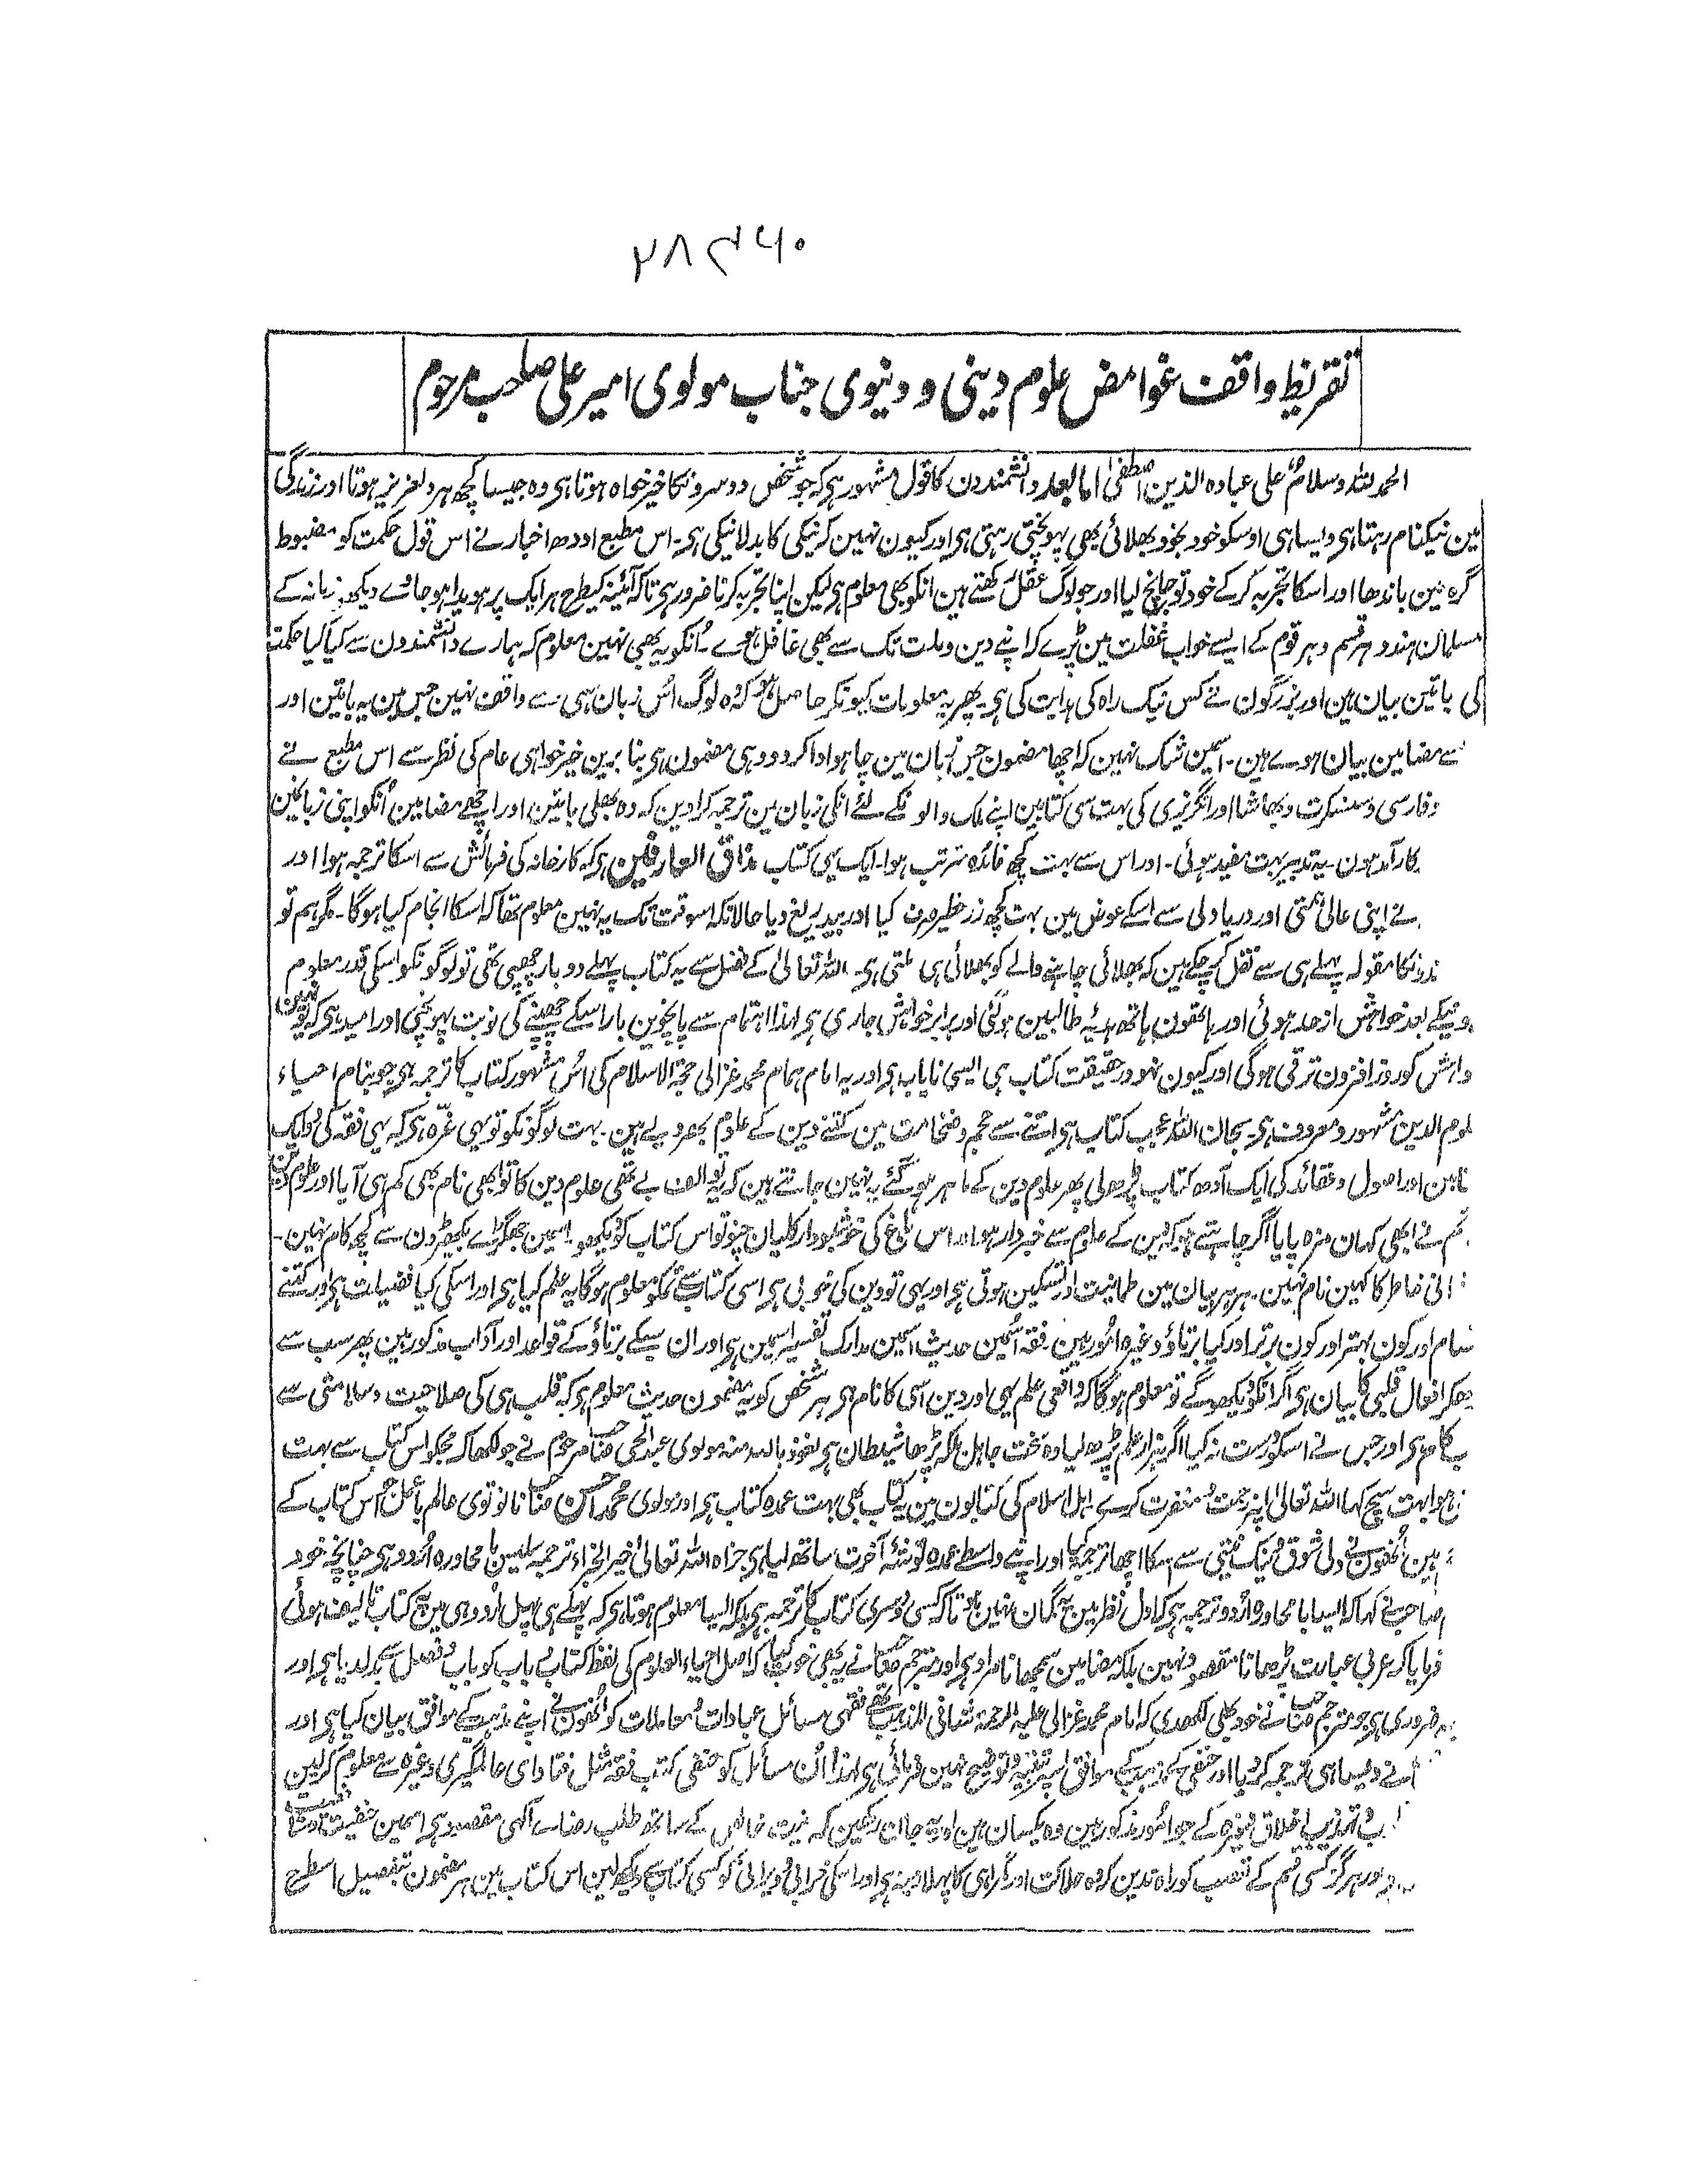 ۲۸۴۶۰
تقریظ واقف غوامض علوم دینی و دنیوی جناب مولوی امیر علی صاحب مرحوم
الحمد للہ وسلامٌ علی عبادہ الذین اصطفیٰ اما بعد دانشمندون کا قول مشہور ہی کہ جو شخص دوسرونکا خیر خواہ ہوتا ہی وہ جیسا کچھ ہر دلعزیز ہوتا اور زندگی
مین نیکنام رہتا ہی ویسا ہی اوسکو خود بخود بھلائی بھی پہونچتی رہتی ہی اور کیون نہین کہ نیکی کا بدلا نیکی ہی۔ اس مطبع اودھ اخبار نے اس قول حکمت کو مضبوط
گرہ مین باندھا اور اسکا تجربہ کرکے خود تو جانچ لیا اور جو لوگ عقل رکھتے ہین انکو بھی معلوم ہی لیکن اپنا تجربہ کرنا ضرور ہی تاکہ آئینہ کیطرح ہر ایک پر ہویدا ہو جاوے دیکھو زمانہ کے
مسلمان ہندو ہر قسم و ہر قوم کے ایسے خواب غفلت مین پڑے کہ اپنے دین و ملت تک سے بھی غافل ہوے۔ اُنکو یہ بھی نہین معلوم کہ ہمارے دانشمندون سے کیا کیا حکمت
کی باتین بیان ہین اور بزرگون نے کس نیک راہ کی ہدایت کی ہی۔ پھر یہ معلومات کیونکر حاصل ہو کہ وہ لوگ اُس زبان ہی سے واقف نہین جس مین یہ باتین اور
سے مضامین بیان ہوے ہین۔ اسمین شک نہین کہ اچھا مضمون جس زبان مین چاہو ادا کردو وہی مضمون ہی بنا برین خیر خواہی عام کی نظر سے اس مطبع نے
و فارسی و سنسکرت و بھاشا اور انگریزی کی بہت سی کتابین اپنے ملک والونکے لئے انکی زبان مین ترجمہ کرا دین کہ وہ بھلی باتین اور اچھے مضامین اُنکو اپنی زبانمین
کارآمد ہون۔ یہ تدبیر بہت مفید ہوئی۔ اور اس سے بہت کچھ فائدہ مترتب ہوا۔ ایک یہی کتاب مذاق العارفین ہی کہ کارخانہ کی فرمائش سے اسکا ترجمہ ہوا اور
نے اپنی عالی ہمتی اور دریا دلی سے اسکے عوض مین بہت کچھ زر خطیر صرف کیا اور بیدریغ دیا حالانکہ اسوقت تک یہ نہین معلوم تھا کہ اسکا انجام کیا ہوگا۔ مگر ہم تو
مقولہ پہلے ہی سے نقل کر چکے ہین کہ بھلائی چاہنے والے کو بھلائی ہی ملتی ہی۔ اللہ تعالیٰ کے فضل سے یہ کتاب پہلے دوبار چھپی تھی تو لوگونکو اسکی قدر معلوم
بعد خواہش از حد ہوئی اور ہاتھون ہاتھ ہدیۂ طالبین ہوگئی اور برابر خواہش جاری ہی لہذا اہتمام سے پانچوین بار اسکے چھپنے کی نوبت پہونچی اور امید ہی کہ
کو روز افزون ترقی ہوگی اور کیون نہو درحقیقت کتاب ہی ایسی نایاب ہی اور یہ امام ہمام محمد غزالی حجۃ الاسلام کی اُس مشہور کتاب کا ترجمہ ہی جو بنام احیاء
لوم الدین مشہور و معروف ہی۔ سبحان اللہ عجب کتاب ہی اتنے سے حجم و ضخامت مین کتنے دین کے علوم بھر دیے ہین۔ بہت لوگونکو تو یہی غرّہ ہی کہ یہی فقہ کی دو ایک
تابین اور اصول و عقائد کی ایک آدھ کتاب پڑھ لی پھر علوم دین کے ماہر ہو گئے یہ نہین جانتے ہین کہ یہ تو الف بے تھی علوم دین کا تو ابھی نام بھی کم ہی آیا اور
تم نے ابھی کہان مزہ پایا اگر چاہتے ہو کہ دین کے علوم سے خبردار ہو اور اس باغ کی خوشبودار کلیان چنو تو اس کتاب کو دیکھو۔ اسمین جھگڑے بکھیڑون سے کچھ کام نہین۔
خاطر کا کہین نام نہین۔ ہر ہر بیان مین طمانیت اور تسکین ہوتی ہی اور یہی تو دین کی خوبی ہی اسی کتاب سے تمکو معلوم ہوگا یہ علم کیا ہی اور اسکی کیا فضیلت ہی اور کتنے
سام اور کون بہتر اور کون برتر اور کیا برتاؤ وغیرہ امور ہین فقہ اسمین حدیث اسمین مدارک تفسیر اسمین ہی اور ان سبکے برتاؤ کے قواعد اور آداب مذکور ہین پھر سب سے
افعال قلبی کا بیان ہی اگر انکو دیکھو گے تو معلوم ہوگا کہ واقعی علم یہی اور دین اسی کا نام ہی ہر شخص کو یہ مضمون حدیث معلوم ہی کہ قلب ہی کی صلاحیت و سلامتی سے
ہی اور جس نے اسکو درست نہ کیا اگر ہزار علم پڑھ لیا وہ سخت جاہل بلکہ پڑھا شیطان ہی نعوذ باللہ منہ مولوی عبدالحی صاحب مرحوم نے جو لکھا کہ مجکو اس کتاب سے بہت
ہوا بہت سچ کہا اللہ تعالیٰ اپنی رحمت و مغفرت کرے۔ اہل اسلام کی کتابون مین یہ کتاب بھی بہت عمدہ کتاب ہی اور مولوی محمد احسن صاحب نانوتوی عالم باعمل اس کتاب کے
ہین اُنھون نے دلی شوق و نیک نیتی سے اسکا اچھا ترجمہ کیا اور اپنے واسطے عمدہ توشۂ آخرت ساتھ لیا ہی جزاہ اللہ تعالیٰ خیر الجزاء ترجمہ سلیس بامحاورہ اُردو ہی چنانچہ خود
صاحب نے کہا کہ ایسا بامحاورہ اردو ترجمہ ہی کہ اول نظر مین یہ گمان نہین ہوتا کہ کسی دوسری کتاب کا ترجمہ ہی بلکہ ایسا معلوم ہوتا ہی کہ پہلے ہی پہل اُردو ہی مین یہ کتاب تالیف ہوئی
فرمایا کہ عربی عبارت پڑھانا مقصود نہین بلکہ مضامین سمجھانا مراد ہی اور مترجم صاحب نے یہ بھی خوب کیا کہ اصل احیاء العلوم کی لفظ کتاب باب کو باب و فصل سے بدلدیا ہی اور
ضروری ہی جو مترجم صاحب نے خود بھی لکھدی کہ امام محمد غزالی علیہ الرحمۃ شافعی المذہب تھے فقہی مسائل عبادات و معاملات کو اُنھون نے اپنے مذہب کے موافق بیان کیا ہی اور
نے ویسا ہی ترجمہ کر دیا اور حنفی مذہب کے موافق اسپر تنبیہ و توضیح نہین فرمائی ہی لہذا اُن مسائل کو حنفی کتب فقہ مثل فتاوای عالمگیری وغیرہ سے معلوم کرلین
تہذیب اخلاق وغیرہ کے جو امور مذکور ہین وہ یکسان ہین اور یہ جان رکھین کہ نیت خالص کے ساتھ طلب رضاے الٰہی مقصود ہی اسمین
اور ہرگز کسی قسم کے تعصب کو راہ ندین کہ وہ ہلاکت اور گمراہی کا پہلا درجہ ہی اور اسکی خرابی و برائی کو کسی کتاب سے دیکھ لین اس کتاب مین ہر مضمون بتفصیل اسطرح